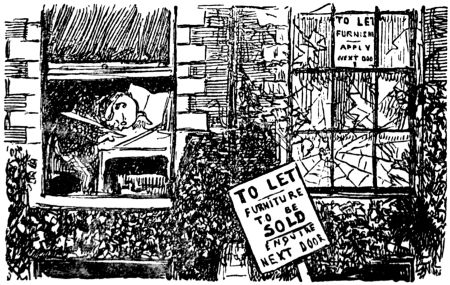 TO LET
FURNISH
APPLY
NEXT DOO
TO LET
FURNITURE
TO BE
SOLD
ENQUIRE
NEXT DOOR